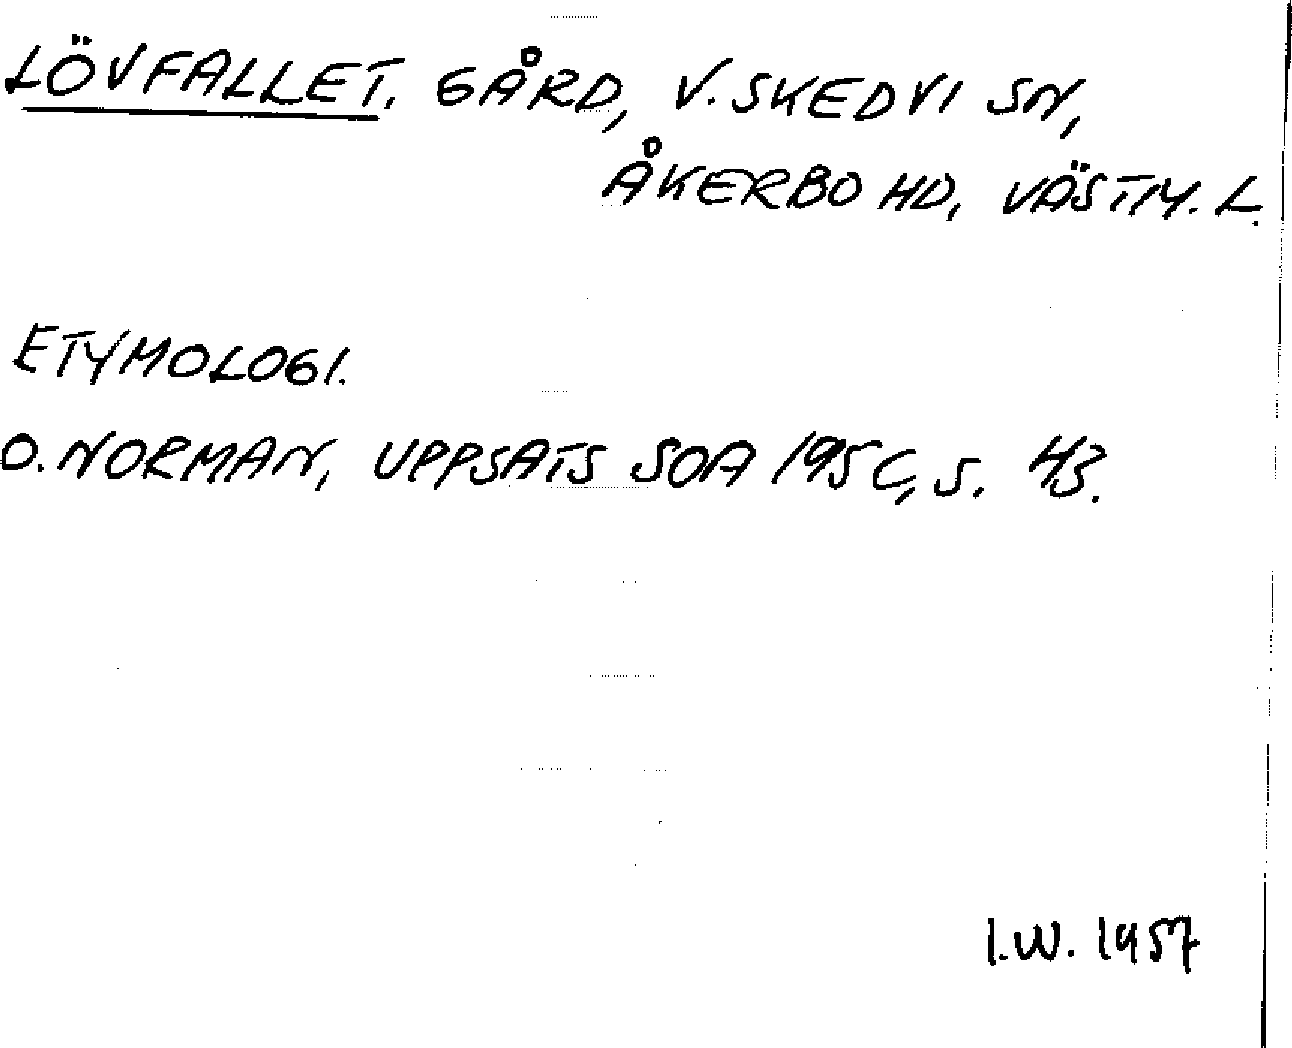 LÖVFALLET. GÅRD, V. SKEDVI SN,
ÅKERBO HD, VÄSTM. L.
ETYMOLOGI.
O. NORMAN, UPPSATS SOA 1950, S. 43.
I.W. 1957